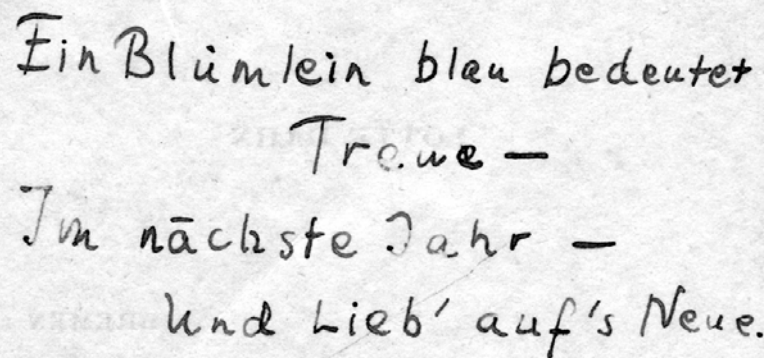 Ein Blümlein blau bedeutet
Treue —
Im nächste Jahr —
Und Lieb' auf's Neue.